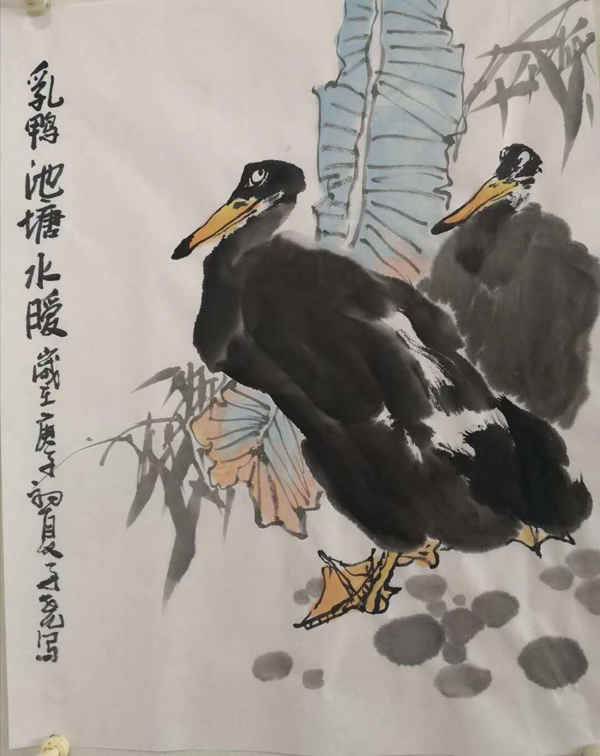 乳鸭池塘水暖 歲在庚子初夏 写